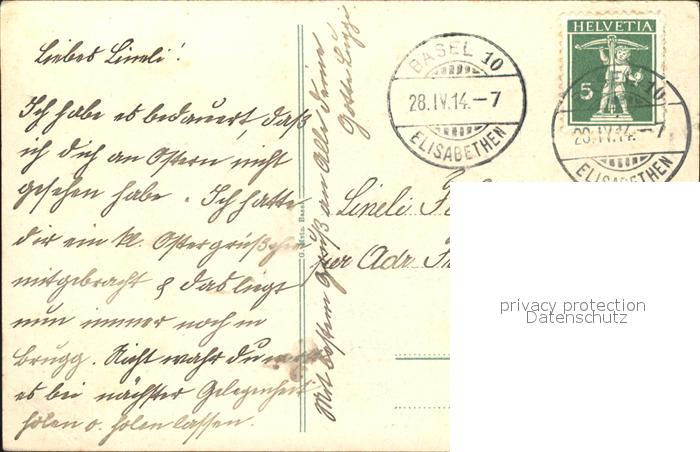 Liebes Lineli!
Ich habe es bedauert, daß
ich dich an Ostern nicht
gesehen habe. Ich hatte
dir ein kl. Ostergrüßchen
mitgebracht & das liegt
nun immer noch in
Brugg. Nicht wahr du
es bei nächster Gelegenheit
holen o. holen lassen.
Mit bestem Gruß an Alle Deine
Gotte
BASEL 10
28.IV.14.–7
ELISABETHEN
HELVETIA
5
10
28.IV.14.–7
ELISABETHEN
Lineli
per Adr.
privacy protection
Datenschutz